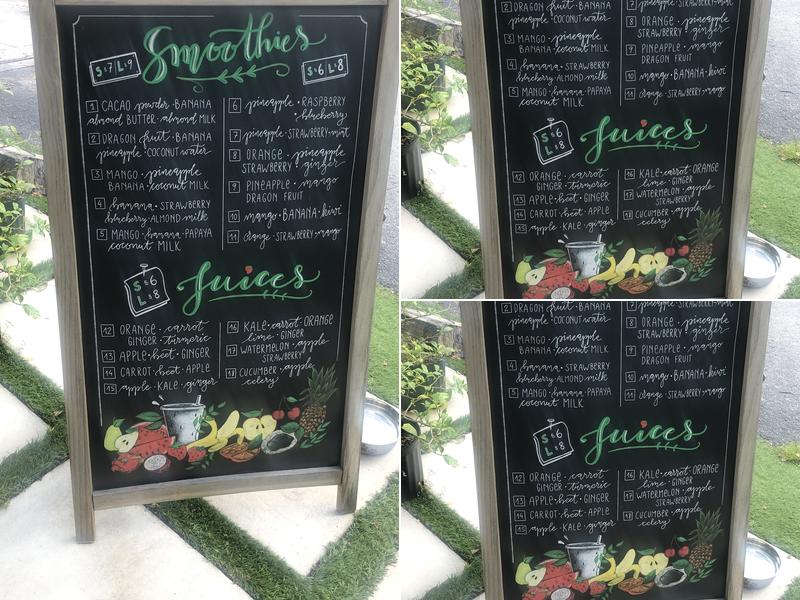 Smoothies
S:7 L:9
S:6 L:8
1 CACAO powder · BANANA
almond BUTTER · almond MILK
2 DRAGON fruit · BANANA
pineapple · COCONUT water
3 MANGO · pineapple
BANANA · coconut MILK
4 banana · STRAWBERRY
blueberry · ALMOND milk
5 MANGO · banana · PAPAYA
coconut MILK
6 pineapple · RASPBERRY
blueberry
7 pineapple · STRAWBERRY · mint
8 ORANGE · pineapple
STRAWBERRY · ginger
9 PINEAPPLE · mango
DRAGON FRUIT
10 mango · BANANA · kiwi
11 orange · STRAWBERRY · mango
Juices
S:6
L:8
12 ORANGE · carrot
GINGER · turmeric
13 APPLE · beet · GINGER
14 CARROT · beet · APPLE
15 apple · KALE · ginger
16 KALE · carrot · ORANGE
lime · GINGER
17 WATERMELON · apple
STRAWBERRY
18 CUCUMBER · apple
celery
2 DRAGON fruit · BANANA
pineapple · COCONUT water
3 MANGO · pineapple
BANANA · coconut MILK
4 banana · STRAWBERRY
blueberry · ALMOND milk
5 MANGO · banana · PAPAYA
coconut MILK
7 pineapple · STRAWBERRY · mint
8 ORANGE · pineapple
STRAWBERRY · ginger
9 PINEAPPLE · mango
DRAGON FRUIT
10 mango · BANANA · kiwi
11 orange · STRAWBERRY · mango
Juices
S:6
L:8
12 ORANGE · carrot
GINGER · turmeric
13 APPLE · beet · GINGER
14 CARROT · beet · APPLE
15 apple · KALE · ginger
16 KALE · carrot · ORANGE
lime · GINGER
17 WATERMELON · apple
STRAWBERRY
18 CUCUMBER · apple
celery
2 DRAGON fruit · BANANA
pineapple · COCONUT water
3 MANGO · pineapple
BANANA · coconut MILK
4 banana · STRAWBERRY
blueberry · ALMOND milk
5 MANGO · banana · PAPAYA
coconut MILK
7 pineapple · STRAWBERRY · mint
8 ORANGE · pineapple
STRAWBERRY · ginger
9 PINEAPPLE · mango
DRAGON FRUIT
10 mango · BANANA · kiwi
11 orange · STRAWBERRY · mango
Juices
S:6
L:8
12 ORANGE · carrot
GINGER · turmeric
13 APPLE · beet · GINGER
14 CARROT · beet · APPLE
15 apple · KALE · ginger
16 KALE · carrot · ORANGE
lime · GINGER
17 WATERMELON · apple
STRAWBERRY
18 CUCUMBER · apple
celery